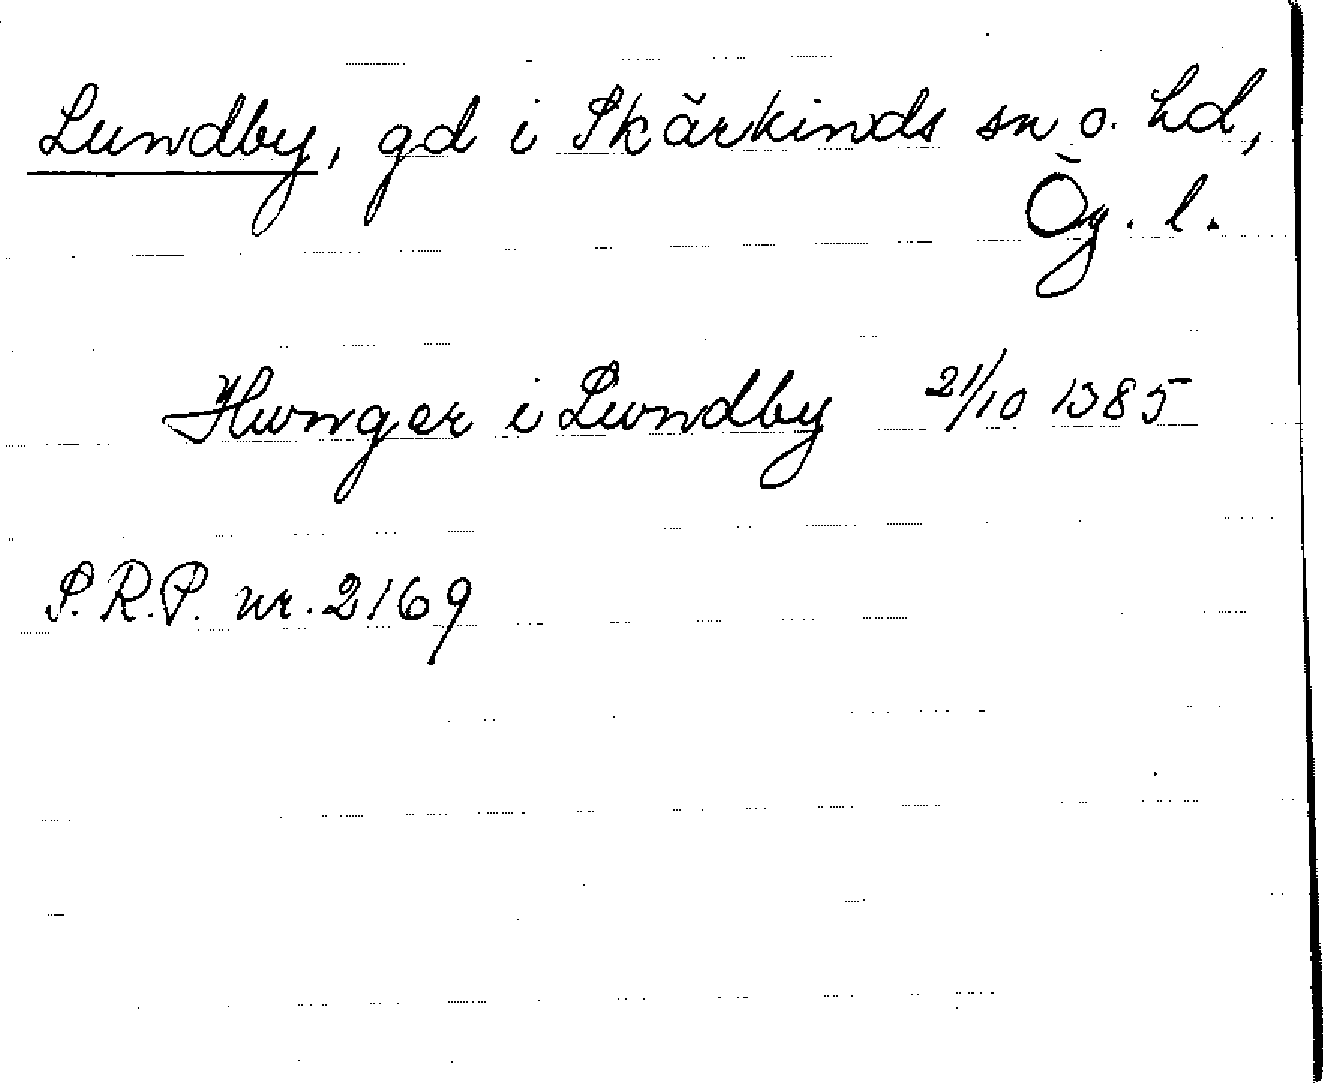 Lundby, gd i Skärkinds sn o. hd,
Ög. l.
Hunger i Lundby 21/10 1385
S.R.P. nr. 2169